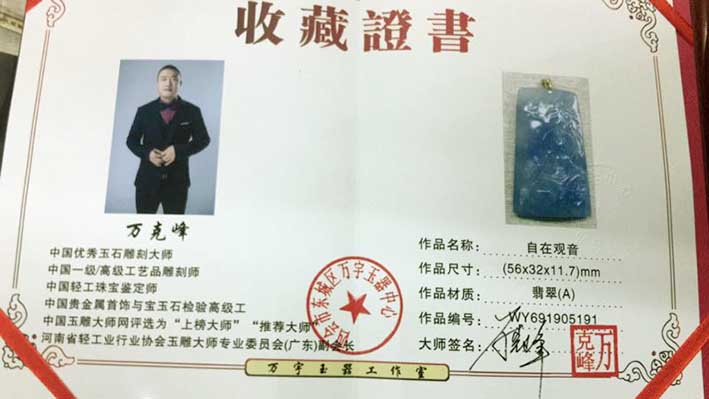 收藏證書
万克峰
中国优秀玉石雕刻大师
中国一级/高级工艺品雕刻师
中国轻工珠宝鉴定师
中国贵金属首饰与宝玉石检验高级工
中国玉雕大师网评选为“上榜大师”“推荐大师”
河南省轻工业行业协会玉雕大师专业委员会(广东)副会长
市东城区万宇玉器中心
作品名称: 自在观音
作品尺寸: (56x32x11.7)mm
作品材质: 翡翠(A)
作品编号: WY691905191
大师签名:
万克峰
万宇玉器工作室